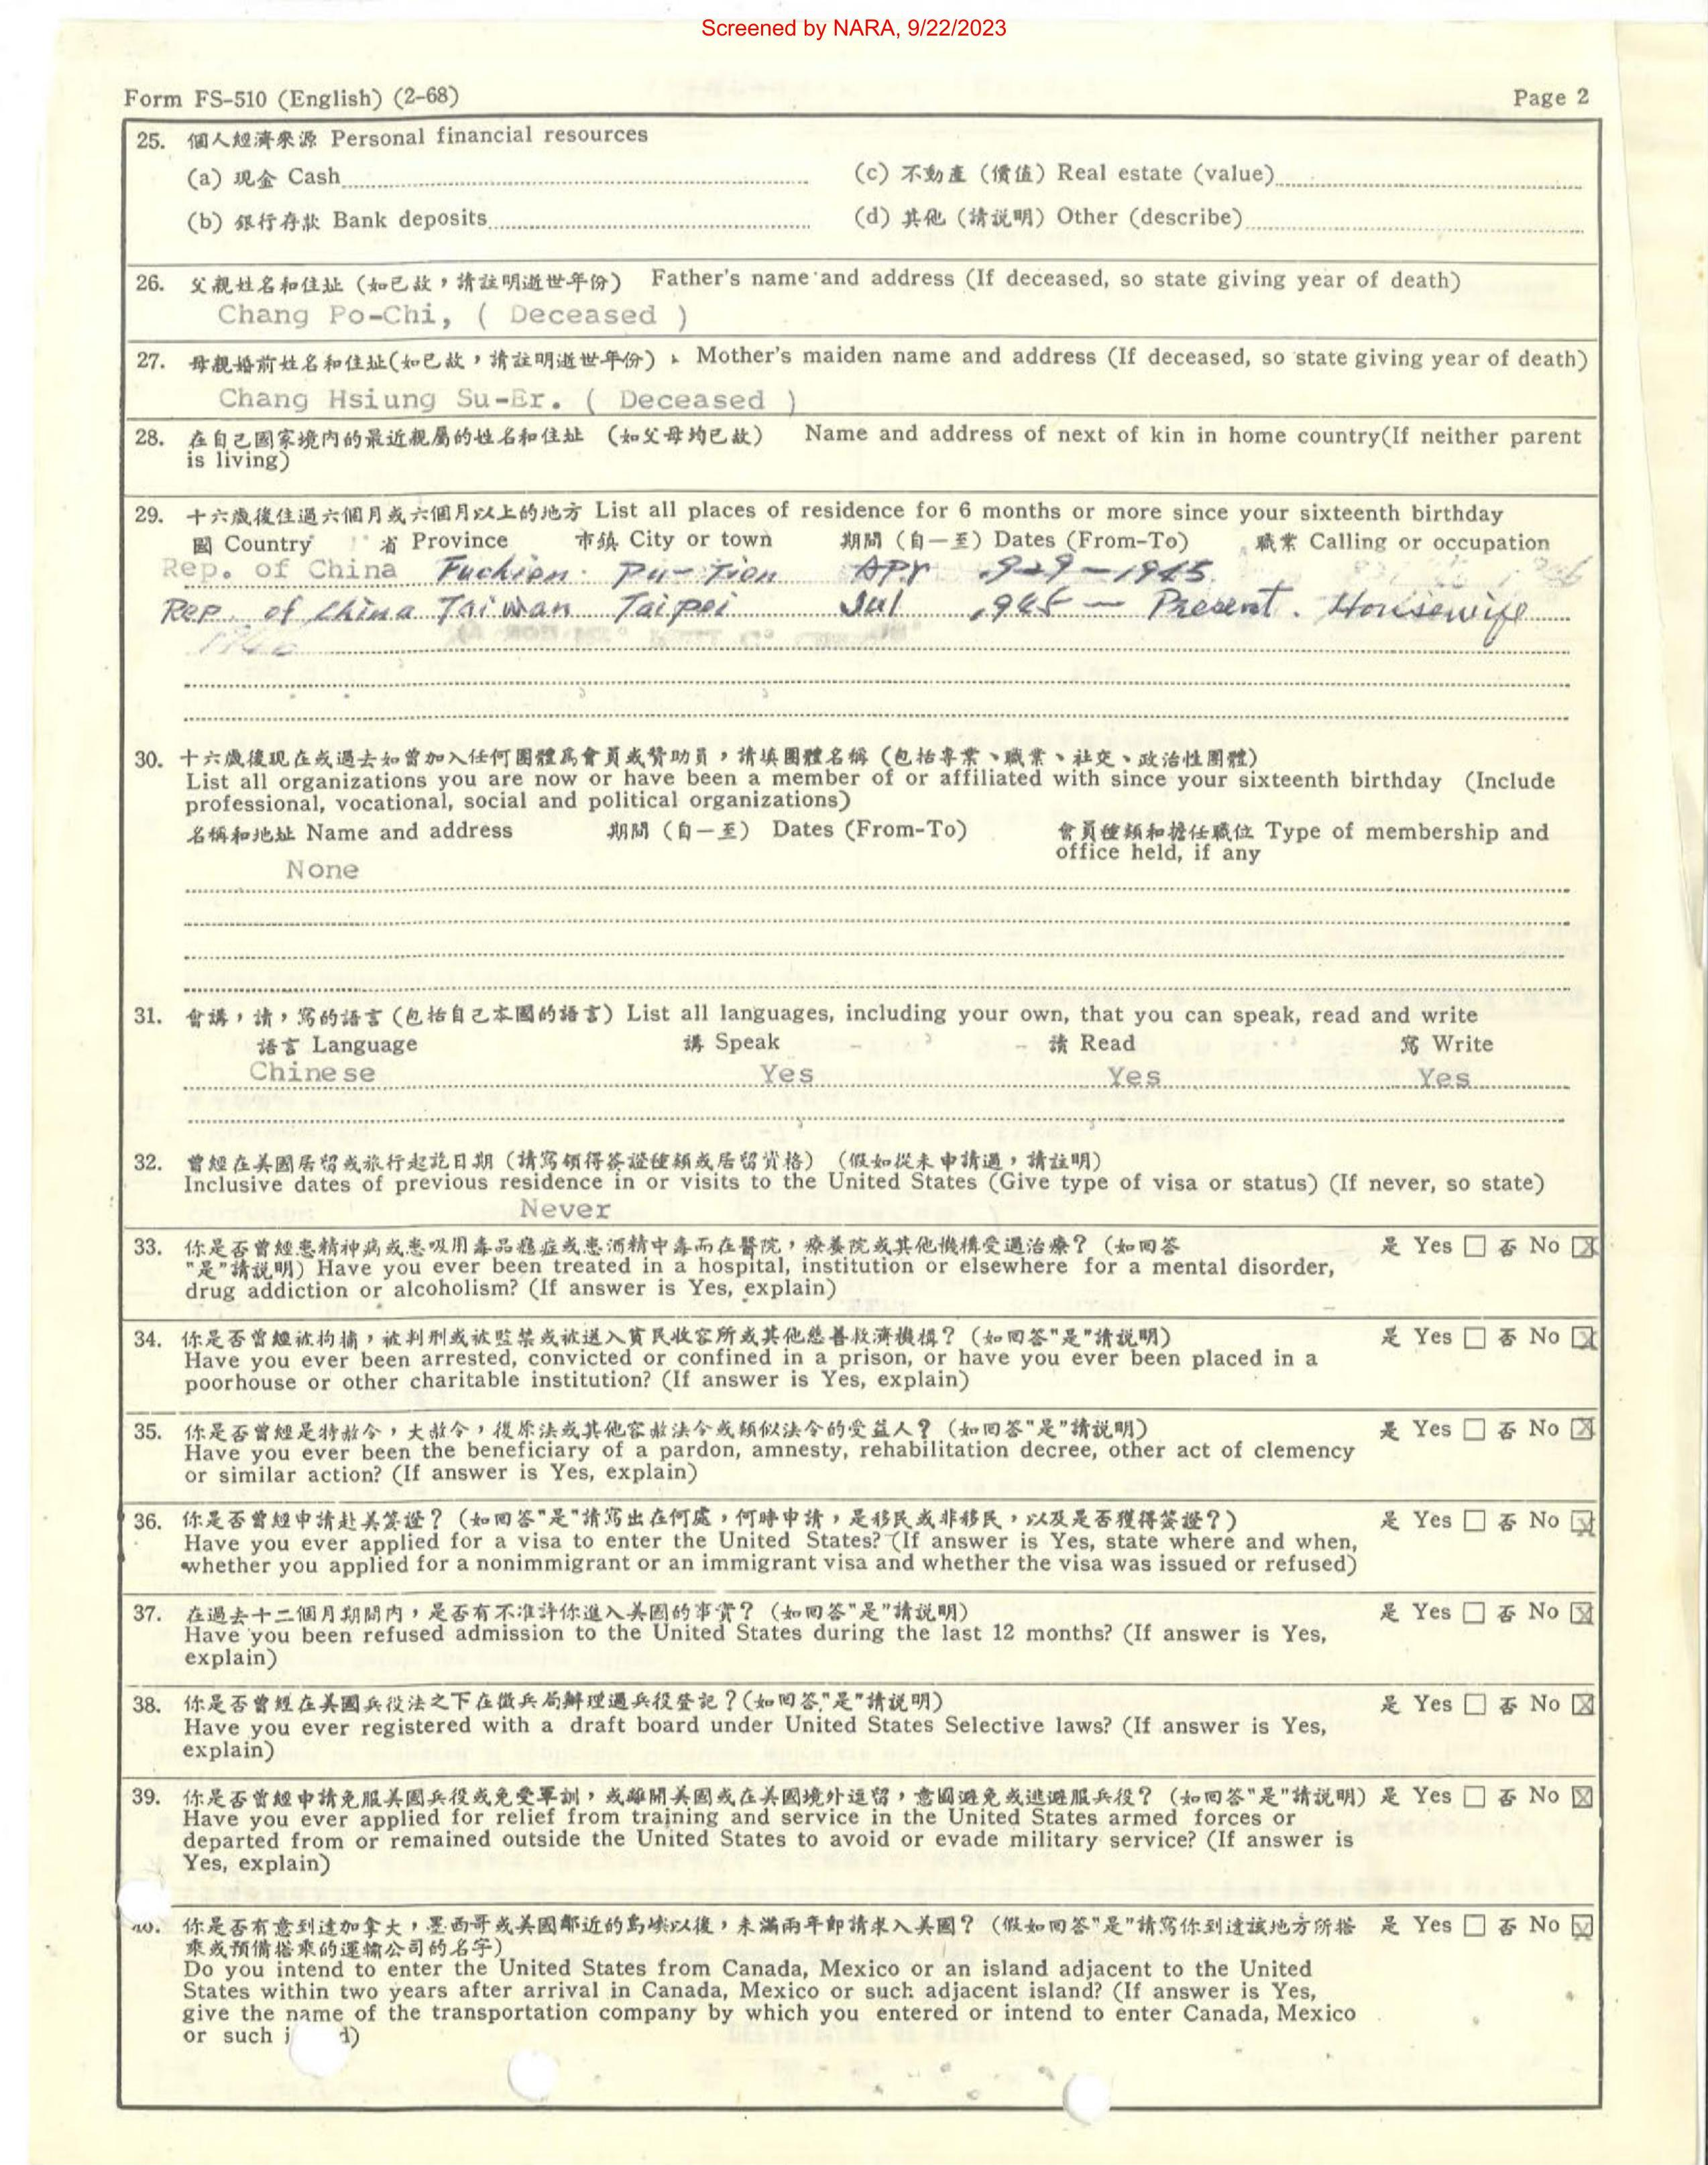 Screened by NARA, 9/22/2023
Form FS-510 (English) (2-68) Page 2
25. 個人經濟來源 Personal financial resources
(a) 現金 Cash (c) 不動產 (價值) Real estate (value)
(b) 銀行存款 Bank deposits (d) 其他 (請説明) Other (describe)
26. 父親姓名和住址 (如已故，請註明逝世年份) Father's name and address (If deceased, so state giving year of death)
Chang Po-Chi, ( Deceased )
27. 母親婚前姓名和住址(如已故，請註明逝世年份) Mother's maiden name and address (If deceased, so state giving year of death)
Chang Hsiung Su-Er. ( Deceased )
28. 在自己國家境內的最近親屬的姓名和住址 (如父母均已故) Name and address of next of kin in home country(If neither parent
is living)
29. 十六歲後住過六個月或六個月以上的地方 List all places of residence for 6 months or more since your sixteenth birthday
國 Country 省 Province 市鎮 City or town 期間 (自—至) Dates (From-To) 職業 Calling or occupation
Rep. of China Fuchien Pu-Tien Apr .929 - 1945
Rep. of China Taiwan Taipei Jul .945 — Present. Housewife
30. 十六歲後現在或過去如曾加入任何團體爲會員或贊助員，請填團體名稱 (包括專業、職業、社交、政治性團體)
List all organizations you are now or have been a member of or affiliated with since your sixteenth birthday (Include
professional, vocational, social and political organizations)
名稱和地址 Name and address 期間 (自—至) Dates (From-To) 會員種類和擔任職位 Type of membership and
office held, if any
None
31. 會講，讀，寫的語言 (包括自己本國的語言) List all languages, including your own, that you can speak, read and write
語言 Language 講 Speak 讀 Read 寫 Write
Chinese Yes Yes Yes
32. 曾經在美國居留或旅行起訖日期 (請寫領得簽證種類或居留資格) (假如從未申請過，請註明)
Inclusive dates of previous residence in or visits to the United States (Give type of visa or status) (If never, so state)
Never
33. 你是否曾經患精神病或患吸用毒品癮症或患酒精中毒而在醫院，療養院或其他機構受過治療? (如回答 是 Yes ☐ 否 No ☒
"是"請説明) Have you ever been treated in a hospital, institution or elsewhere for a mental disorder,
drug addiction or alcoholism? (If answer is Yes, explain)
34. 你是否曾經被拘捕，被判刑或被監禁或被送入貧民收容所或其他慈善救濟機構? (如回答"是"請説明) 是 Yes ☐ 否 No ☒
Have you ever been arrested, convicted or confined in a prison, or have you ever been placed in a
poorhouse or other charitable institution? (If answer is Yes, explain)
35. 你是否曾經是特赦令，大赦令，復原法或其他容赦法令或類似法令的受益人? (如回答"是"請説明) 是 Yes ☐ 否 No ☒
Have you ever been the beneficiary of a pardon, amnesty, rehabilitation decree, other act of clemency
or similar action? (If answer is Yes, explain)
36. 你是否曾經申請赴美簽證? (如回答"是"請寫出在何處，何時申請，是移民或非移民，以及是否獲得簽證?) 是 Yes ☐ 否 No ☒
Have you ever applied for a visa to enter the United States? (If answer is Yes, state where and when,
whether you applied for a nonimmigrant or an immigrant visa and whether the visa was issued or refused)
37. 在過去十二個月期間內，是否有不准許你進入美國的事實? (如回答"是"請説明) 是 Yes ☐ 否 No ☒
Have you been refused admission to the United States during the last 12 months? (If answer is Yes,
explain)
38. 你是否曾經在美國兵役法之下在徵兵局辦理過兵役登記?(如回答"是"請説明) 是 Yes ☐ 否 No ☒
Have you ever registered with a draft board under United States Selective laws? (If answer is Yes,
explain)
39. 你是否曾經申請免服美國兵役或免受軍訓，或離開美國或在美國境外逗留，意圖避免或逃避服兵役? (如回答"是"請説明) 是 Yes ☐ 否 No ☒
Have you ever applied for relief from training and service in the United States armed forces or
departed from or remained outside the United States to avoid or evade military service? (If answer is
Yes, explain)
40. 你是否有意到達加拿大，墨西哥或美國鄰近的島嶼以後，未滿兩年即請求入美國? (假如回答"是"請寫你到達該地方所搭 是 Yes ☐ 否 No ☒
乘或預備搭乘的運輸公司的名字)
Do you intend to enter the United States from Canada, Mexico or an island adjacent to the United
States within two years after arrival in Canada, Mexico or such adjacent island? (If answer is Yes,
give the name of the transportation company by which you entered or intend to enter Canada, Mexico
or such i d)